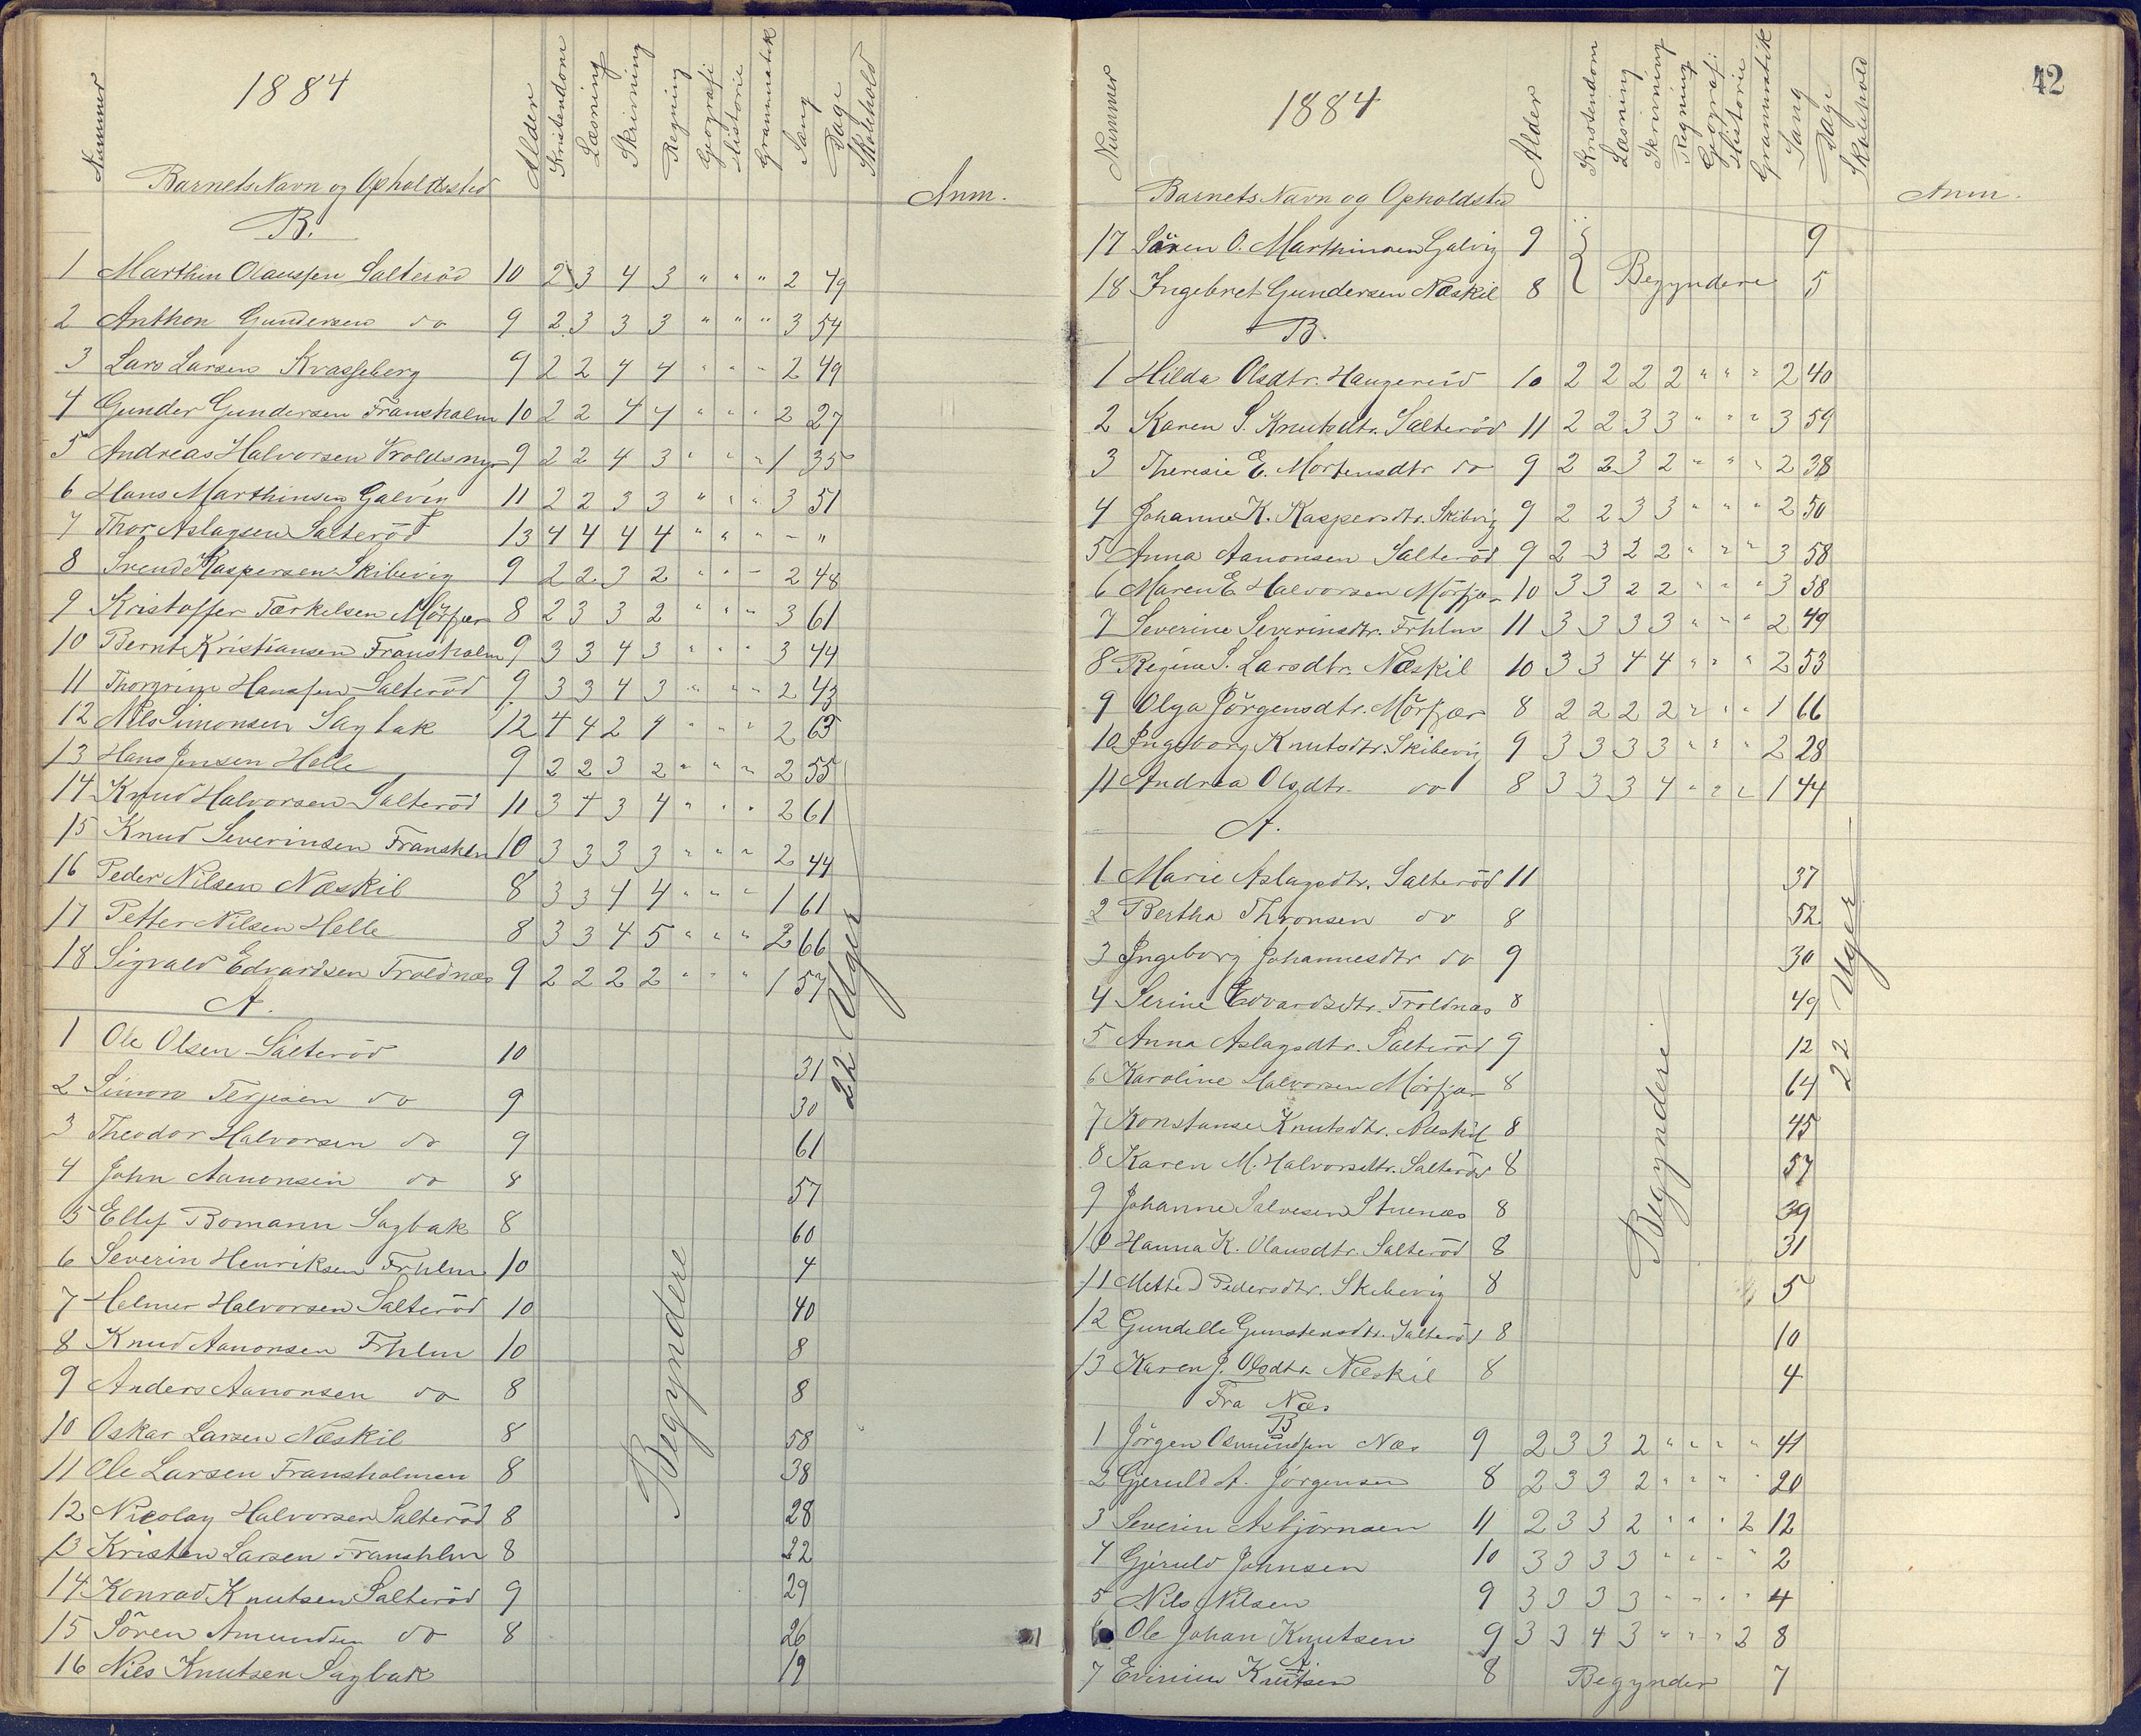 Nummer 1884 Alder Kristendom Læsning Skrivning Regning Geografi Historie Grammatik Sang Dage Skolehold
Barnets Navn og Opholdssted Anm.
B.
1 Marthin Olaussen Salteröd 10 2 3 4 3 " " " 2 49
2 Anthon Gundersen do 9 2 3 3 3 " " " 3 54
3 Lars Larsen Kvasseberg 9 2 2 4 4 " " " 2 49
4 Gunder Gundersen Fransholm 10 2 2 4 4 " " " 2 27
5 Andreas Halvorsen 9 2 2 4 3 " " " 1 35
6 Hans Marthinsen Galvig 11 2 2 3 3 " " " 3 51
7 Thor Aslagsen Salteröd 13 4 4 4 4 " " " - "
8 Svend Kaspersen Skibevig 9 2 2 3 2 " " " 2 48
9 Kristoffer Tærkelsen Mörfjær 8 2 3 3 2 " " " 3 61
10 Bernt Kristiansen Fransholm 9 3 3 4 3 " " " 3 44
11 Thorgrim Hanssen Salteröd 9 3 3 4 3 " " " 2 43
12 Nils Simonsen Sagbak 12 4 4 2 4 " " " 2 63
13 Hans Jensen Helle 9 2 2 3 2 " " " 2 55
14 Knud Halvorsen Salteröd 11 3 4 3 4 " " " 2 61
15 Knud Severinsen Franshlm 10 3 3 3 3 " " " 2 44
16 Peder Nilsen Næskil 8 3 3 4 4 " " " 1 61
17 Petter Nilsen Helle 8 3 3 4 5 " " " 2 66
18 Sigvald Edvardsen Troldnæs 9 2 2 2 2 " " " 1 57
22 Uger
A.
1 Ole Olsen Salteröd 10 31
2 Simon Terjesen do 9 30
3 Theodor Halvorsen do 9 61
4 John Aanonsen do 8 57
5 Ellef Bomann Sagbak 8 60
6 Severin Henriksen Frhlm 10 4
7 Helmer Halvorsen Salteröd 10 40
8 Knud Aanonsen Frhlm 10 8
9 Anders Aanonsen do 8 8
10 Oskar Larsen Næskil 8 58
11 Ole Larsen Fransholmen 8 38
12 Nicolay Halvorsen Salteröd 8 28
13 Kristen Larsen Franshlm 8 22
14 Konrad Knutsen Salteröd 9 29
15 Sören Amundsen do 8 26
16 Nils Knutsen Sagbak 19
Begyndere
42
Nummer 1884 Alder Kristendom Læsning Skrivning Regning Geografi Historie Grammatik Sang Dage Skolehold
Barnets Navn og Opholdsted Anm.
17 Sören O. Marthinsen Galvig 9 9
18 Ingebret Gundersen Næskil 8 Begyndere 5
B.
1 Hilda Olsdtr. Haugerud 10 2 2 2 2 " " " 2 40
2 Karen S. Knutsdtr. Salteröd 11 2 2 3 3 " " " 3 59
3 Theresie E. Mortensdtr do 9 2 2 3 2 " " " 2 38
4 Johanne K. Kaspersdtr. Skibvig 9 2 2 3 3 " " " 2 50
5 Anna Aanonsen Salteröd 9 2 3 2 2 " " " 3 58
6 Maren E Halvorsen Mörfjær 10 3 3 2 2 " " " 3 58
7 Severine Severinsdtr. Frhlm 11 3 3 3 3 " " " 2 49
8 Regine S. Larsdtr. Næskil 10 3 3 4 4 " " " 2 53
9 Olga Jörgensdtr. Mörfjær 8 2 2 2 2 " " " 1 66
10 Ingeborg Knutsdtr. Skibevig 9 3 3 3 3 " " " 2 28
11 Andrea Olsdtr. do 8 3 3 3 4 " " " 1 44
A.
1 Marie Aslagsdtr. Salteröd 11 37
2 Bertha Thronsen do 8 52
3 Ingeborg Johannesdtr do 9 30
4 Serine Edvardsdtr. Troldnæs 8 49
5 Anna Aslagsdtr. Salteröd 9 12
6 Karoline Halvorsen Mörfjær 8 64
7 Konstanse Knutsdtr. Næskil 8 45
8 Karen M. Halvorsdtr. Salteröd 8 57
9 Johanne Salvesen Stuenæs 8 39
10 Hanna K. Olausdtr. Salteröd 8 31
11 Methe Pedersdtr. Skibevig 8 5
12 Gundelle Gunstensdtr. Salteröd 8 10
13 Karen J. Olsdtr. Næskil 8 4
Begyndere
22 Uger
Fra Næs
B
1 Jörgen Osmundsen Næs 9 2 3 3 2 " " " " 41
2 Gjeruld A. Jörgensen 8 2 3 3 2 " " " " 20
3 Severin Asbjörnsen 11 2 3 3 2 " " " 2 12
4 Gjeruld Johnsen 10 3 3 3 3 " " " " 2
5 Nils Nilsen 9 3 3 3 3 " " " " 4
6 Ole Johan Knutsen 9 3 3 4 3 " " " 3 8
A.
7 Knutsen 8 Begynder 7